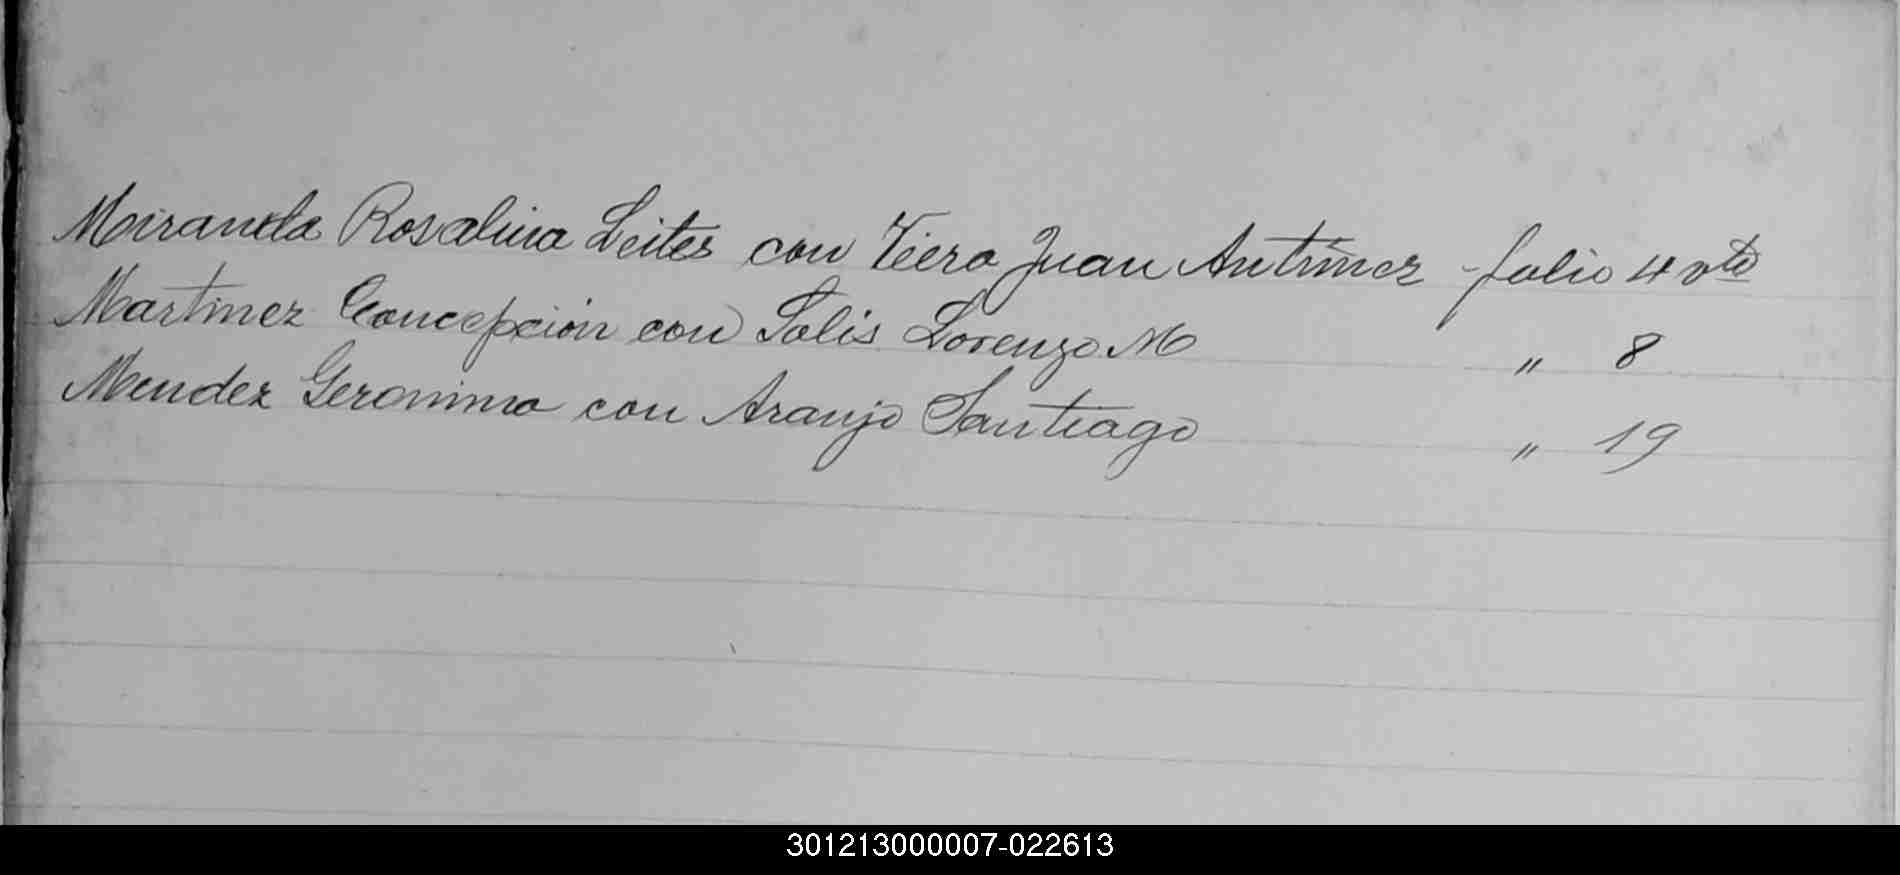 Miranda Rosalina Leites con Viera Juan Antunez folio 4 vto
Martinez Concepción con Solis Lorenzo M " 8
Mendez Geronima con Araujo Santiago " 19
301213000007-022613